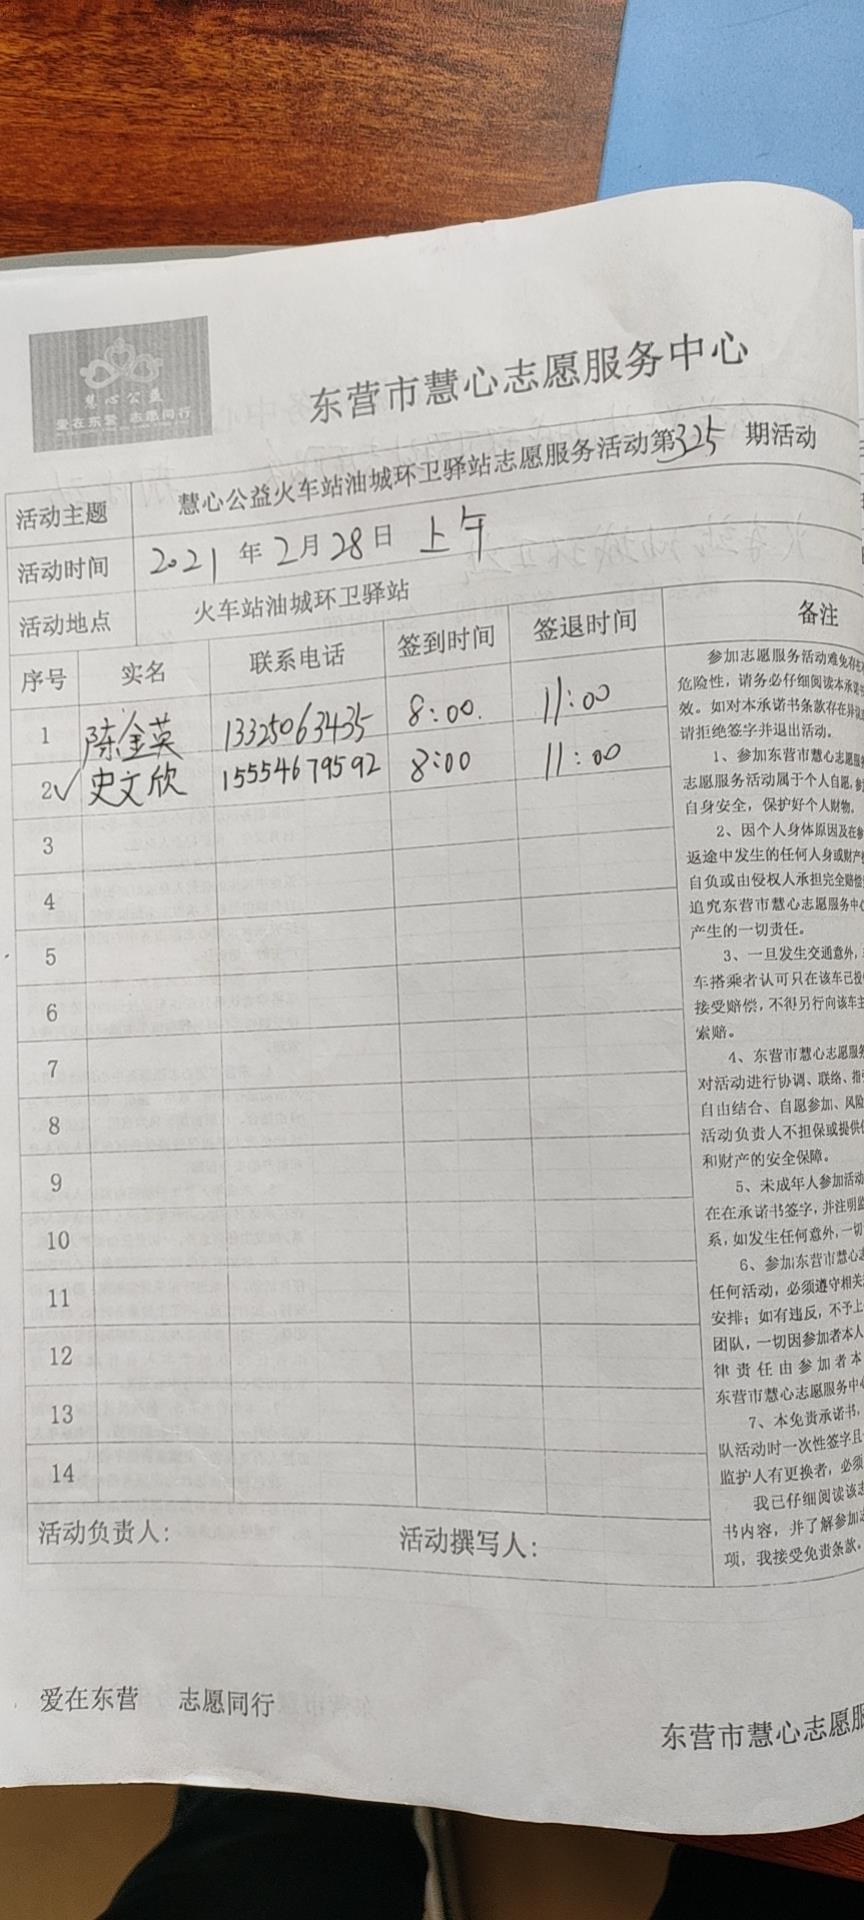 慧心公益
爱在东营 志愿同行
东营市慧心志愿服务中心
活动主题 慧心公益火车站油城环卫驿站志愿服务活动第325期活动
活动时间 2021年2月28日 上午
活动地点 火车站油城环卫驿站
序号 实名 联系电话 签到时间 签退时间 备注
1 陈金英 13325063435 8:00. 11:00
2✓ 史文欣 15554679592 8:00 11:00
3
4
5
6
7
8
9
10
11
12
13
14
参加志愿服务活动难免存在
危险性，请务必仔细阅读本承诺
效。如对本承诺书条款存在异议
请拒绝签字并退出活动。
1、参加东营市慧心志愿服
志愿服务活动属于个人自愿，参
自身安全，保护好个人财物。
2、因个人身体原因及在参
返途中发生的任何人身或财产
自负或由侵权人承担完全赔偿
追究东营市慧心志愿服务中心
产生的一切责任。
3、一旦发生交通意外，
车搭乘者认可只在该车已投
接受赔偿，不得另行向该车主
索赔。
4、东营市慧心志愿服务
对活动进行协调、联络、指
自由结合、自愿参加、风险
活动负责人不担保或提供
和财产的安全保障。
5、未成年人参加活动
在在承诺书签字，并注明监
系，如发生任何意外，一切
6、参加东营市慧心志
任何活动，必须遵守相关
安排；如有违反，不予上
团队，一切因参加者本人
律责任由参加者本
东营市慧心志愿服务中心
7、本免责承诺书，
队活动时一次性签字且
监护人有更换者，必须
我已仔细阅读该志
书内容，并了解参加志
项，我接受免责条款，
活动负责人： 活动撰写人：
爱在东营 志愿同行
东营市慧心志愿服